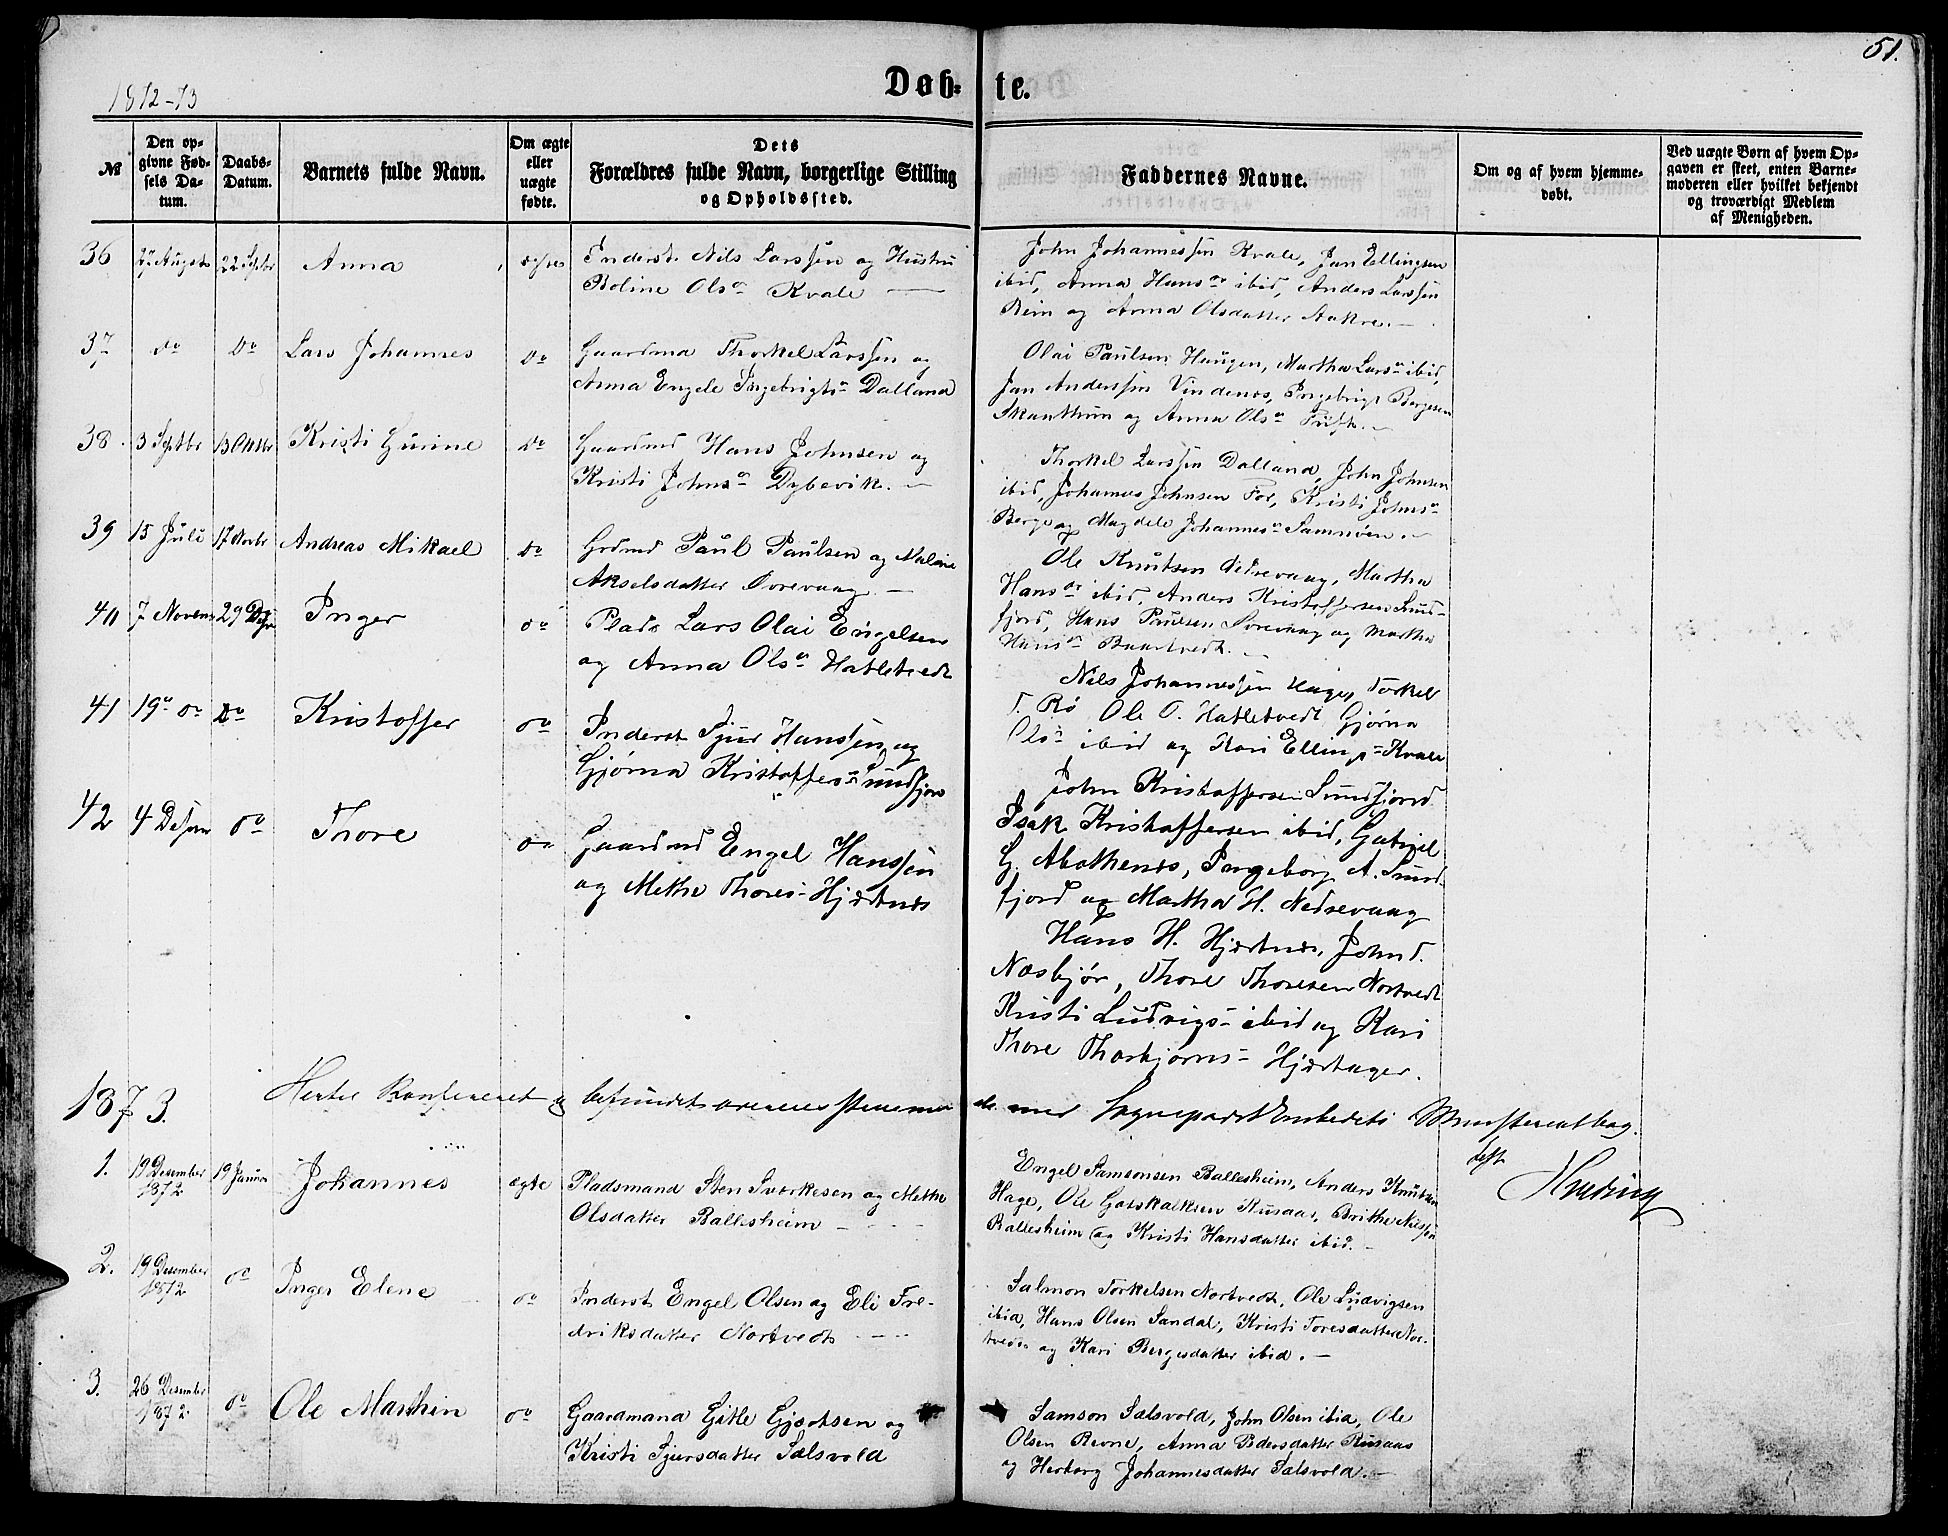 51.
1872-73
Døb- te.
№
Den op-
givne Fød-
sels Da-
tum.
Daabs-
Datum.
Barnets fulde Navn.
Om ægte
eller
uægte
fødte.
Dets
Forældres fulde Navn, borgerlige Stilling
og Opholdssted.
Faddernes Navne.
Om og af hvem hjemme-
døbt.
Ved uægte Børn af hvem Op-
gaven er skeet, enten Barne-
moderen eller hvilket bekjendt
og troværdigt Medlem
af Menigheden.
36 27 August 22 Septbr Anna Inderst. Nils Larssen og Hustru
Boline Olsd Kvale
John Johannessen Kvale, Jan Ellingsen
ibid, Anna Hansd ibid, Anders Larssen
Reim og Anna Olsdatter Aakre.
37 do do Lars Johannes do Gaardmd Thorkel Larssen og
Anna Engele Ingebrigtsd Dalland
Olai Paulsen Haugen, Martha Larsd ibid,
Jan Anderssen Vindenes, Ingebrigt Børgesen
og Anna Olsd
38 3 Septbr 13 Oktbr Kristi Gurine do Gaardmd Hans Johnsen og
Kristi Johnsd Dybevik.
Thorkel Larssen Dalland, John Johnsen
ibid, Johannes Johnsen Fos, Kristi Johnsd
Berge og Magdele Johannesd Samnøen.
39 15 Juli 17 Novbr Andreas Mikael do Grdmd Paul Paulsen og Maline
Akselsdatter Øvrevaag
Ole Knutsen Nedrevaag, Martha
Hansd ibid, Anders Kristoffersen Sund-
fjord, Hans Paulsen Øvrevaag og Martha
Hansd
40 7 Novem 29 Inger do Plads Lars Olai Engelsen
og Anna Olsd Hatletvedt
Nils Johannessen Hage, Torkel
T. Rø Ole T. Hatletvedt Gjørna
Olsd ibid og Kari Ellingsd Kvale
41 19de do do Kristoffer do Inderst Sjur Hanssen og
Gjørna Kristoffersd Sundfjord
John Kristoffersen Sundfjord
Isak Kristoffersen ibid, Gabriel
G. Abothenes, Ingeborg A. Sund-
fjord og Martha H. Nedrevaag
42 4 do Thore do Gaardmd Engel Hanssen
og Methe Thoresd Hjertnes
Hans H. Hjertnes, John T.
Næsbjør, Thore Thoresen Nortvedt
Kristi Ludvigsd ibid og Kari
Thore Thorbjørnsd Hjertager.
1873. Herter Konfereret og befundet overensstemmende med Sognepræst Embedets Ministerialbog.
1. 19 Desember
1872 19 Januar Johannes ægte Pladsmand Sten Sverkesen og Methe
Olsdatter Ballesheim
Engel Samsonsen Ballesheim, Anders Knutsen
Hage, Ole Gotskalksen Rusaas, Brithe Nilssen
Ballesheim og Kristi Hansdatter ibid.
2. 19 Desember
1872 do Inger Elene do Inderst Engel Olsen og Eli Fre-
driksdatter Nortvedt
Salmon Torkelsen Nortvedt, Ole Ludvigsen
ibid, Hans Olsen Sandal, Kristi Toresdatter Nor-
tvedt og Kari Børgesdatter ibid.
3. 26 Desember
1872 do Ole Marthin do Gaardmand Gitle Gjertsen og
Kristi Sjursdatter Sælsvold
Samson Sælsvold, John Olsen ibid, Ole
Olsen Revne, Anna Pedersdatter Rusaas
og Herborg Johannesdatter Sælsvold.